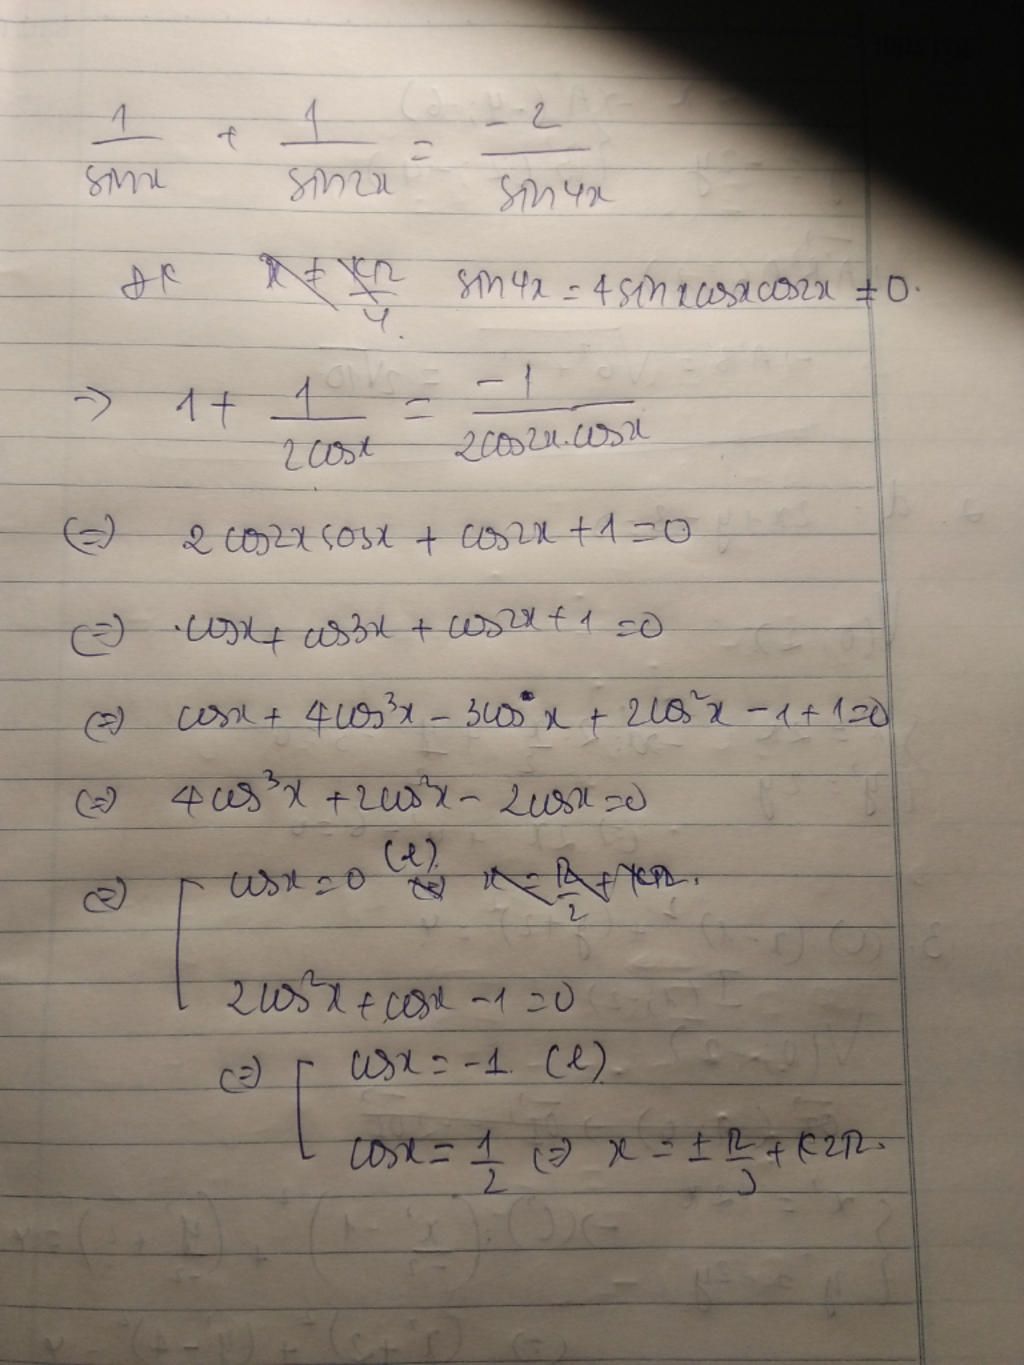 1/sinx + 1/sin2x = -2/sin4x
ĐK x ≠ kπ/4 sin4x = 4sinxcosxcos2x ≠ 0.
=> 1 + 1/2cosx = -1/2cos2x.cosx
(=) 2cos2xcosx + cos2x + 1 = 0
(=) cosx + cos3x + cos2x + 1 = 0
(=) cosx + 4cos³x - 3cosx + 2cos²x - 1 + 1 = 0
(=) 4cos³x + 2cos²x - 2cosx = 0
(=) [ cosx = 0 (l) (=) x = π/2 + kπ.
2cos²x + cosx - 1 = 0
(=) [ cosx = -1. (l)
cosx = 1/2 (=) x = ± π/3 + k2π.